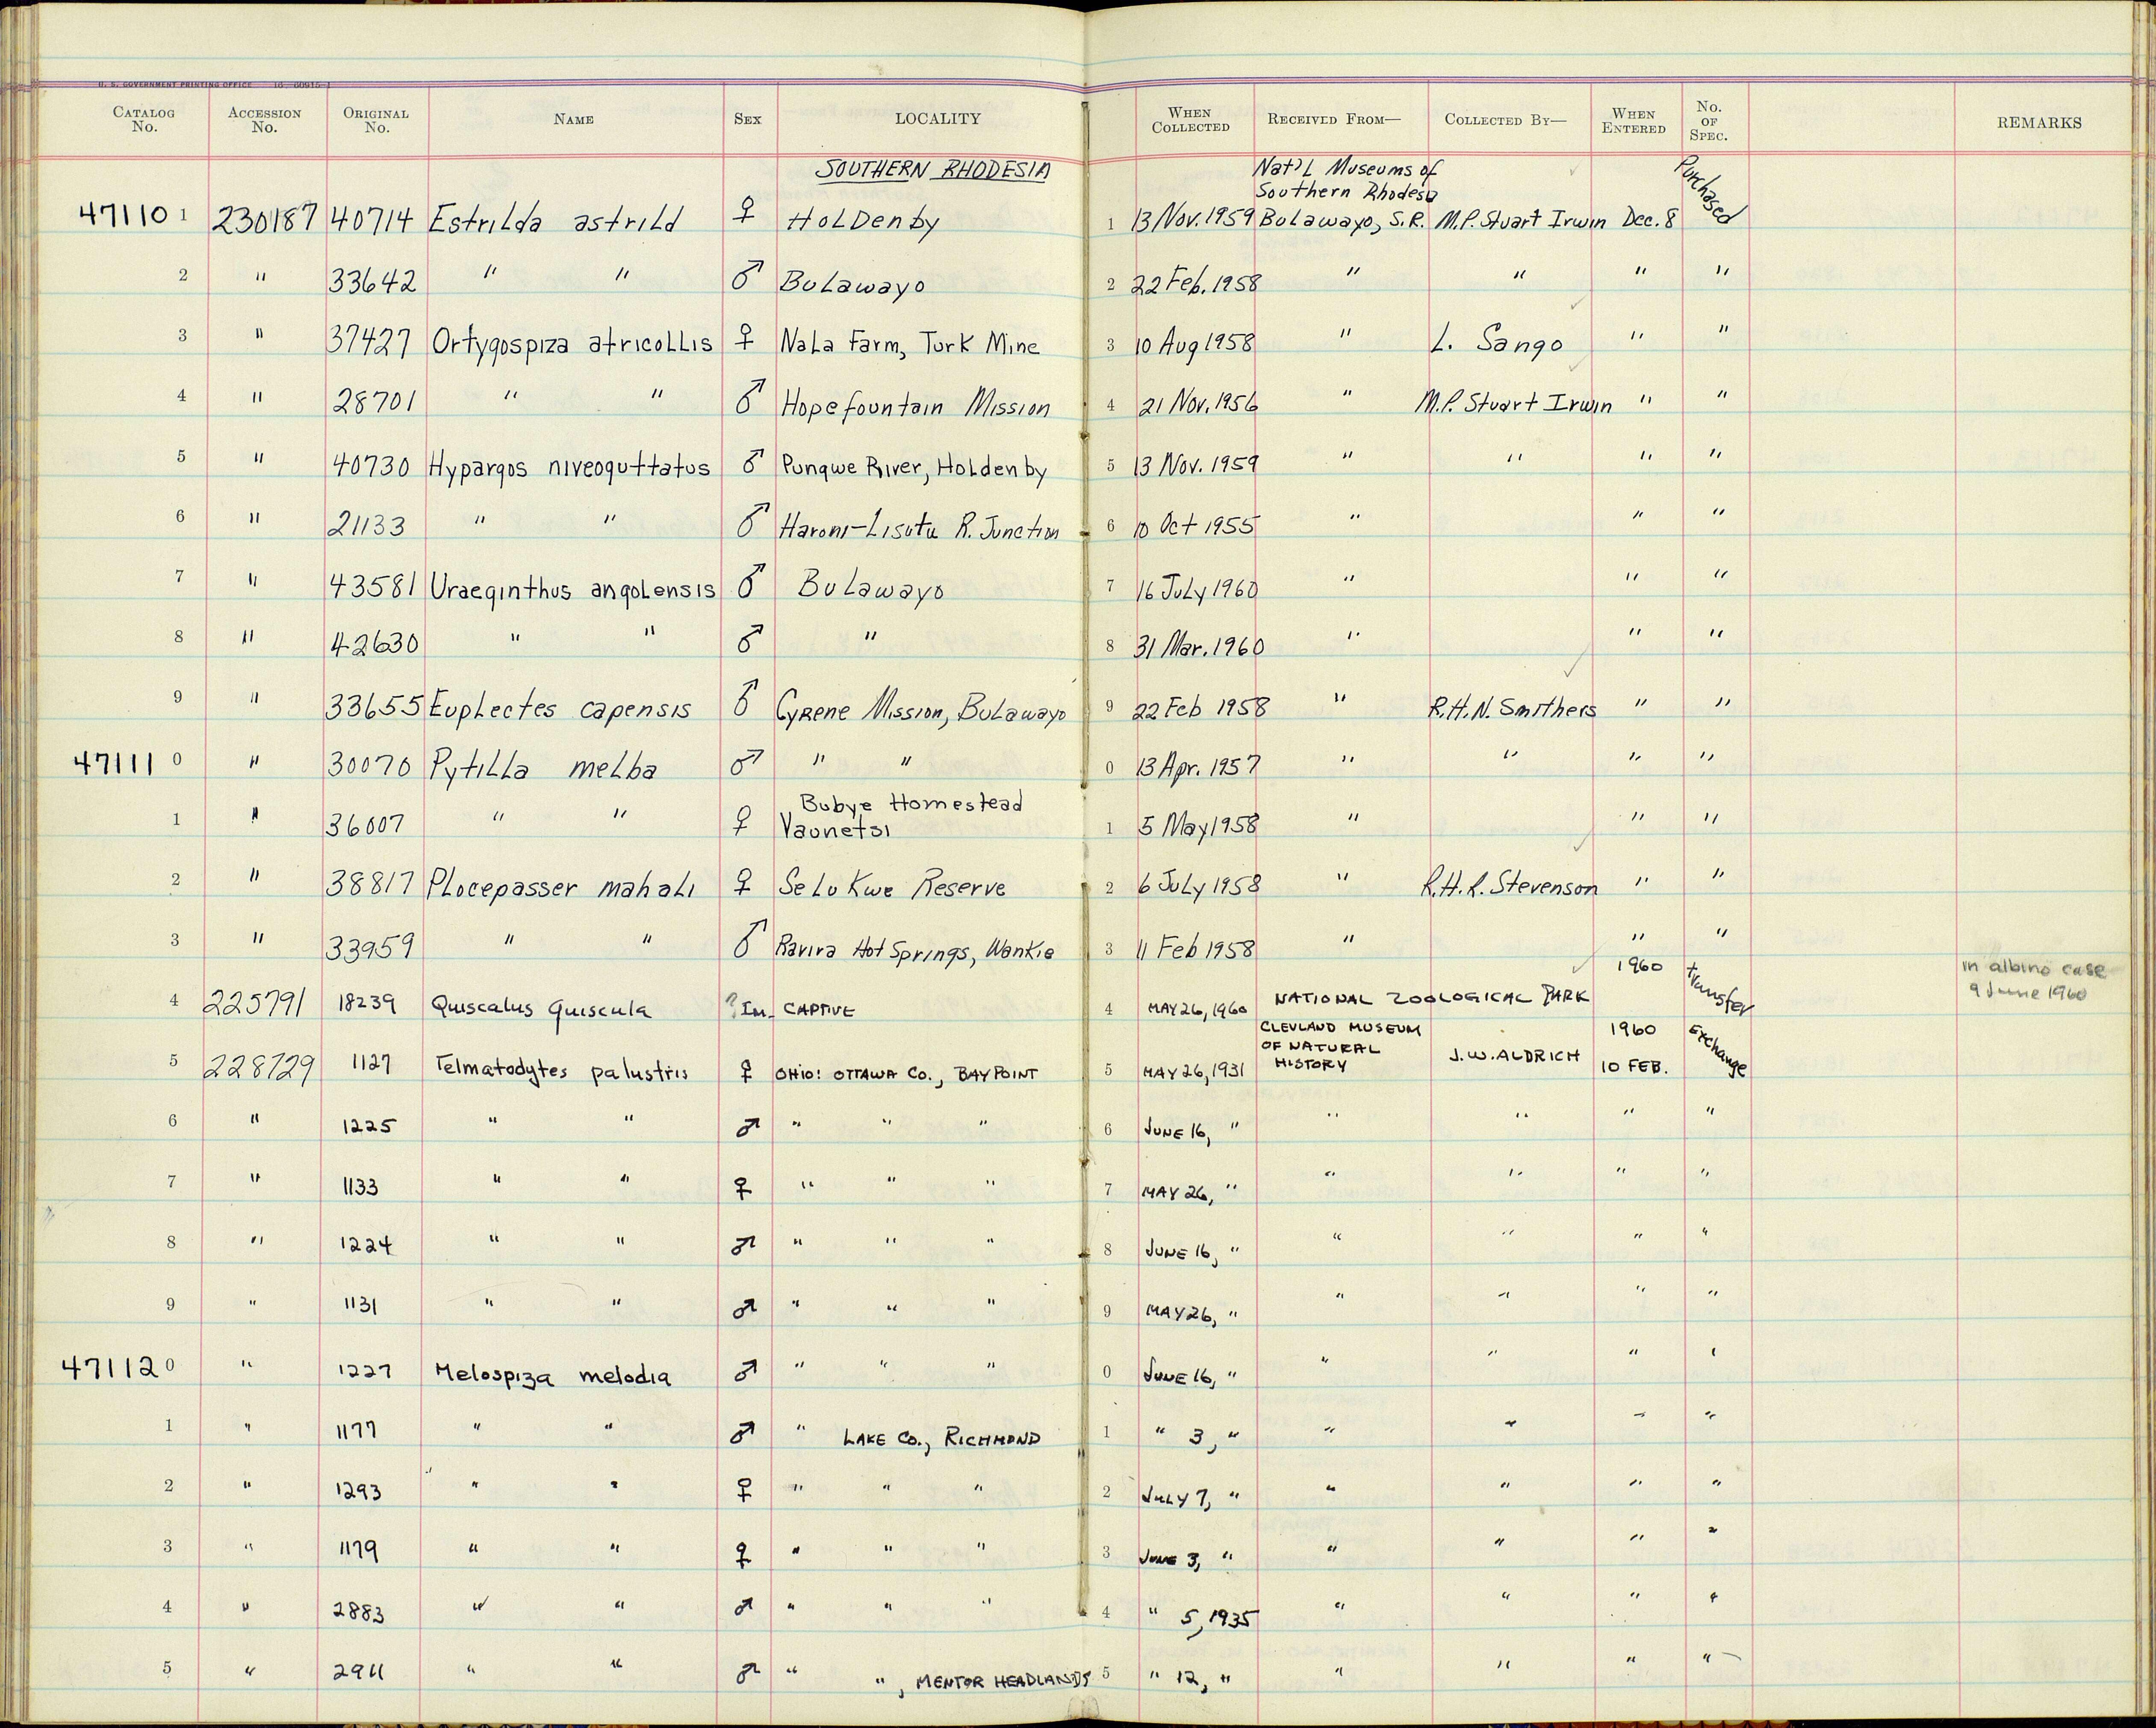 U. S. GOVERNMENT PRINTING OFFICE 16—60915-1
CATALOG No. ACCESSION No. ORIGINAL No. NAME SEX LOCALITY WHEN COLLECTED RECEIVED FROM— COLLECTED BY— WHEN ENTERED No. OF SPEC. REMARKS
SOUTHERN RHODESIA Nat'l Museums of Southern Rhodesia
47110 1 230187 40714 Estrilda astrild ♀ Holdenby 1 13 Nov. 1959 Bulawayo, S.R. M.P. Stuart Irwin Dec. 8 Purchased
2 " 33642 " " ♂ Bulawayo 2 22 Feb. 1958 " " " "
3 " 37427 Ortygospiza atricollis ♀ Nala Farm, Turk Mine 3 10 Aug 1958 " L. Sango " "
4 " 28701 " " ♂ Hopefountain Mission 4 21 Nov. 1956 " M.P. Stuart Irwin " "
5 " 40730 Hypargos niveoguttatus ♂ Pungwe River, Holdenby 5 13 Nov. 1959 " " " "
6 " 21133 " " ♂ Haroni-Lisutu R. Junction 6 10 Oct 1955 " " "
7 " 43581 Uraeginthus angolensis ♂ Bulawayo 7 16 July 1960 " " "
8 " 42630 " " ♂ " 8 31 Mar. 1960 " " "
9 " 33655 Euplectes capensis ♂ Cyrene Mission, Bulawayo 9 22 Feb 1958 " R.H.N. Smithers " "
47111 0 " 30070 Pytilla melba ♂ " " 0 13 Apr. 1957 " " " "
1 " 36007 " " ♀ Bubye Homestead Vaunetsi 1 5 May 1958 " " "
2 " 38817 Plocepasser mahali ♀ Selukwe Reserve 2 6 July 1958 " R.H.R. Stevenson " "
3 " 33959 " " ♂ Ravira Hot Springs, Wankie 3 11 Feb 1958 " " "
4 225791 18239 Quiscalus quiscula ? Im. CAPTIVE 4 MAY 26, 1960 NATIONAL ZOOLOGICAL PARK 1960 transfer in albino case 9 June 1960
5 228729 1127 Telmatodytes palustris ♀ OHIO: OTTAWA CO., BAY POINT 5 MAY 26, 1931 CLEVLAND MUSEUM OF NATURAL HISTORY J.W. ALDRICH 1960 10 FEB. Exchange
6 " 1225 " " ♂ " " " 6 JUNE 16, " " " " "
7 " 1133 " " ♀ " " " 7 MAY 26, " " " " "
8 " 1224 " " ♂ " " " 8 JUNE 16, " " " " "
9 " 1131 " " ♂ " " " 9 MAY 26, " " " " "
47112 0 " 1227 Melospiza melodia ♂ " " " 0 JUNE 16, " " " " "
1 " 1177 " " ♂ " LAKE CO., RICHMOND 1 " 3, " " " " "
2 " 1293 " " ♀ " " " 2 JULY 7, " " " " "
3 " 1179 " " ♀ " " " 3 JUNE 3, " " " " "
4 " 2883 " " ♂ " " " 4 " 5, 1935 " " " "
5 " 2911 " " ♂ " ", MENTOR HEADLANDS 5 " 12, " " " " "